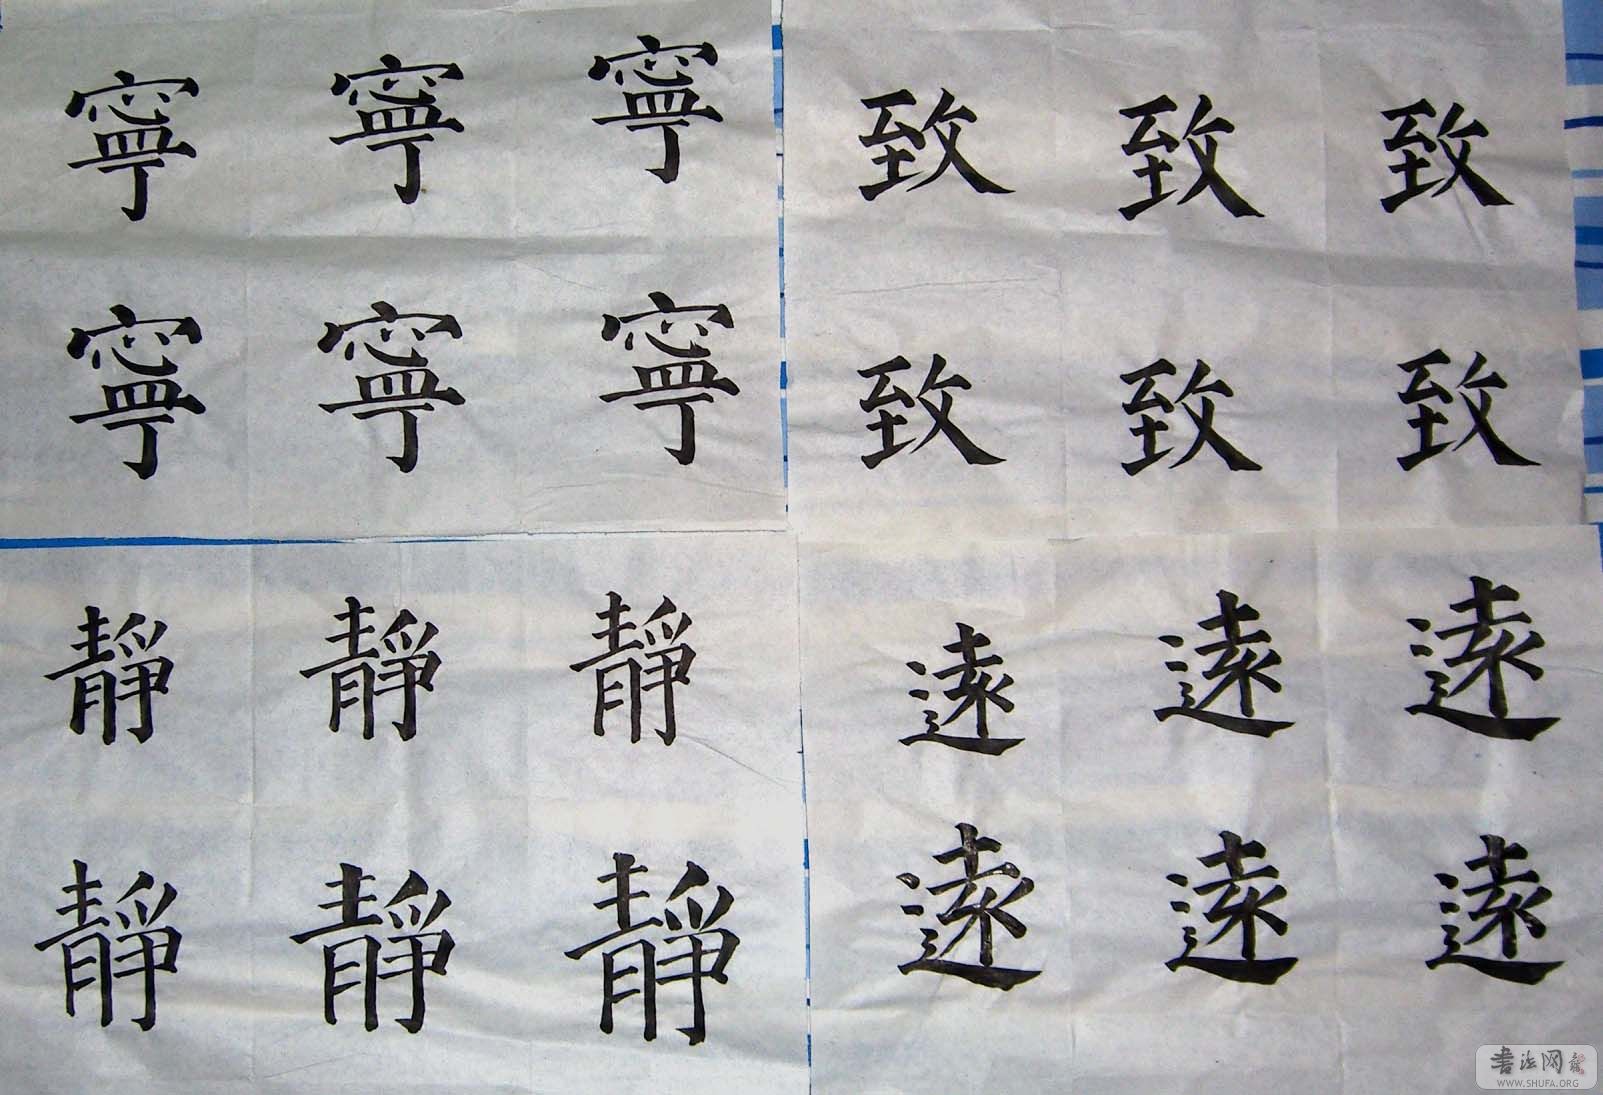 寧 寧 寧 致 致 致
寧 寧 寧 致 致 致
靜 靜 靜 遠 遠 遠
靜 靜 靜 遠 遠 遠
書法网
WWW.SHUFA.ORG